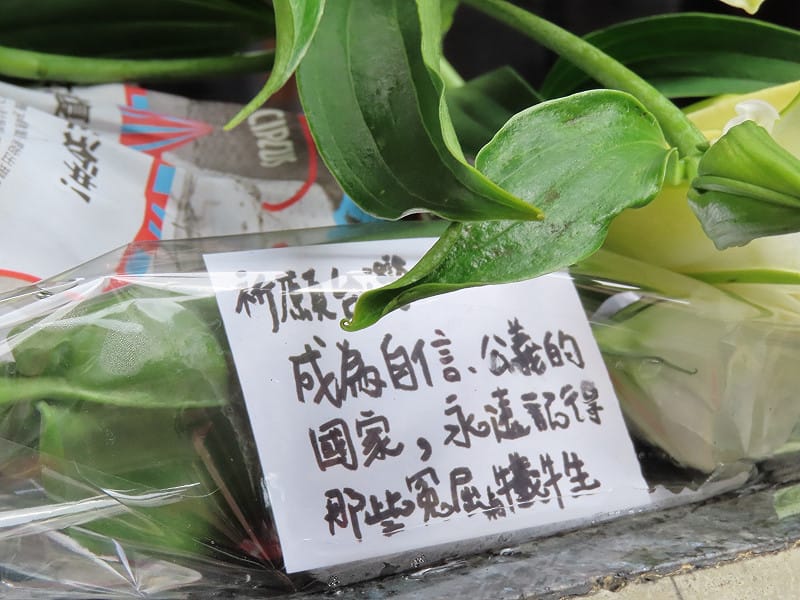 祈願台灣
成為自信、公義的
國家，永遠記得
那些冤屈犧牲
CIPOS